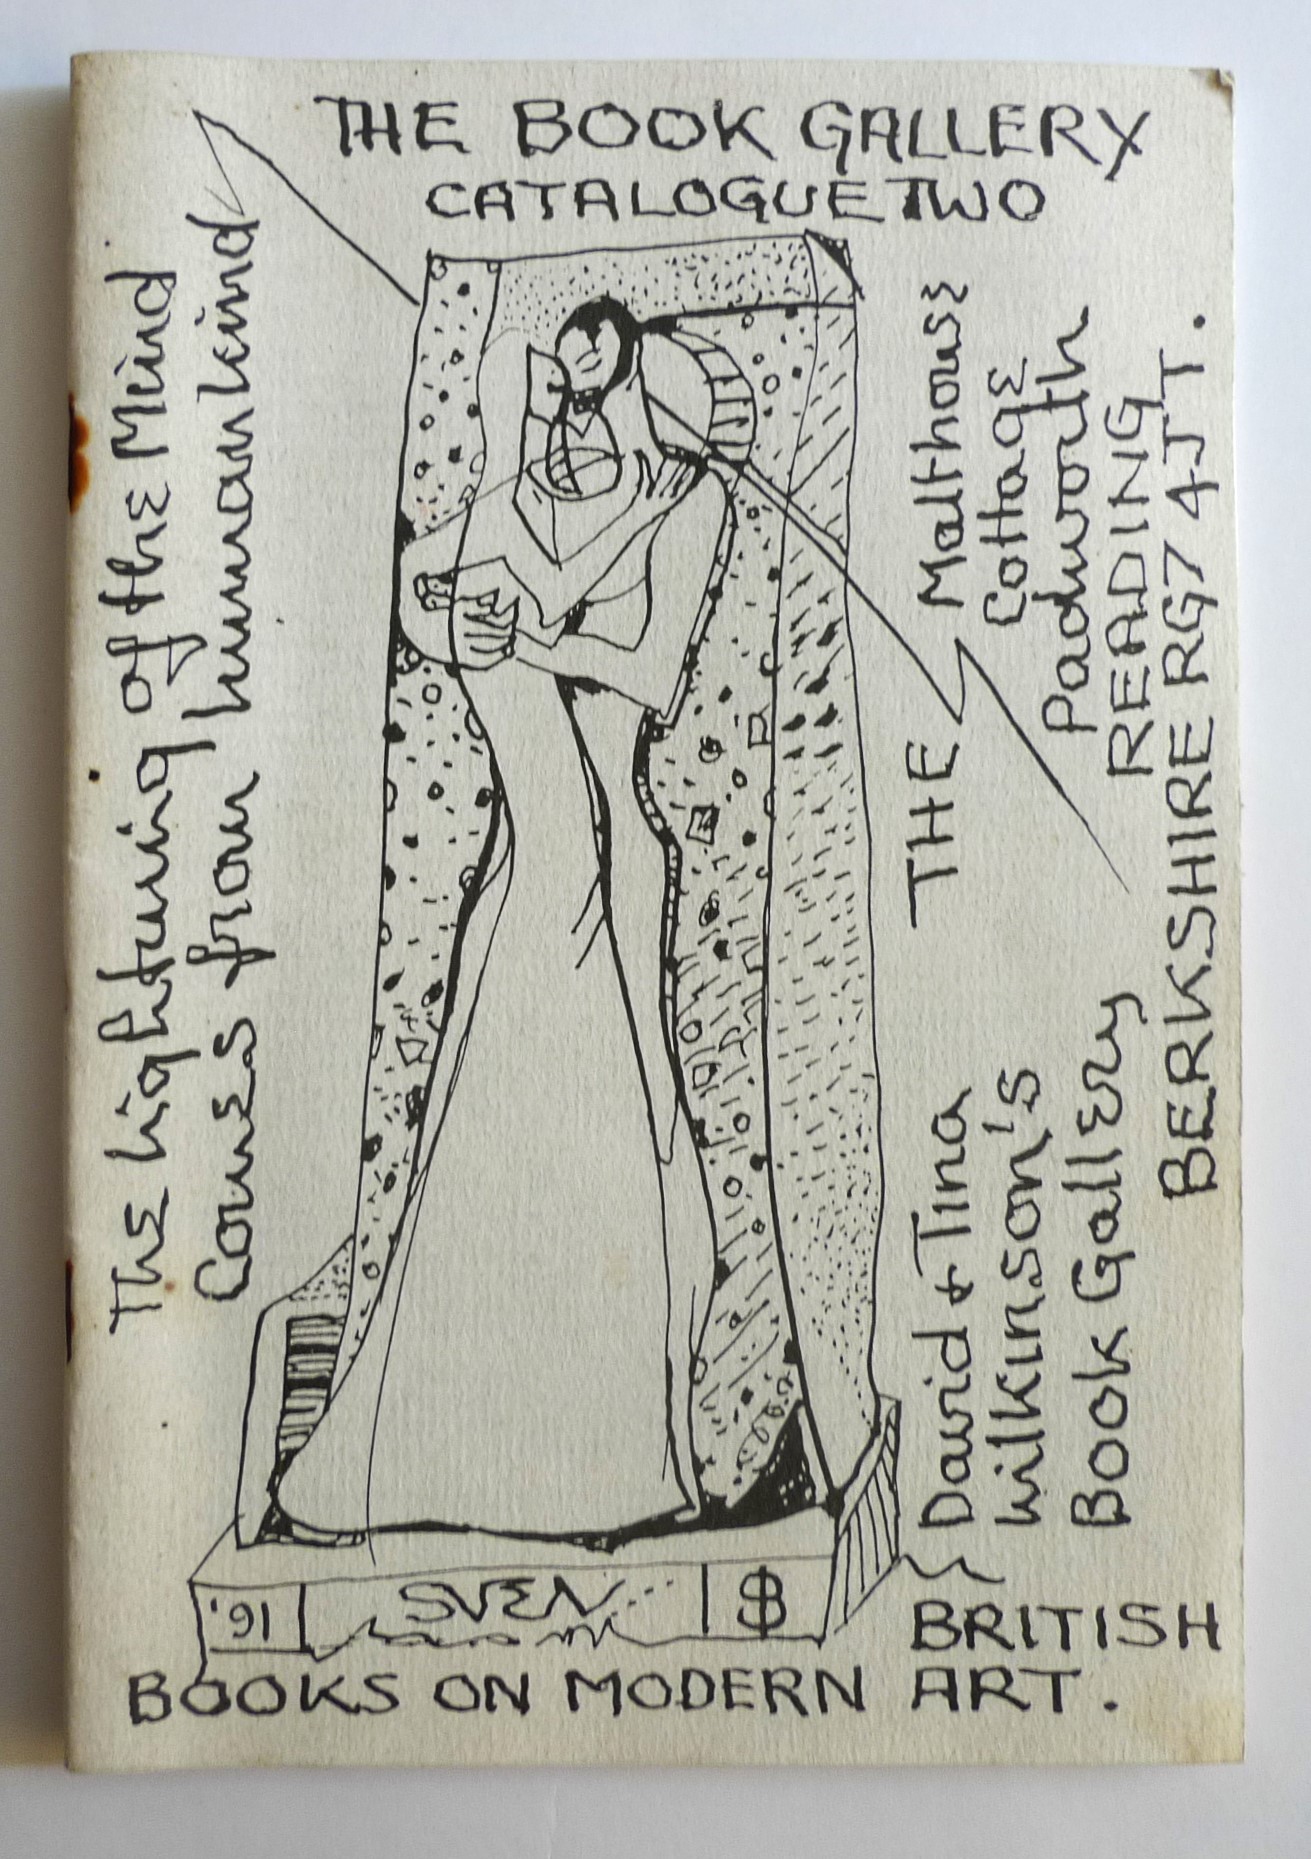 THE BOOK GALLERY
CATALOGUE TWO
The lightning of the Mind
Comes from humankind
THE Malthouse
Cottage
Padworth
READING
BERKSHIRE RG7 4JT.
David + Tina
Wilkinson's
Book Gallery
'91 SVEN B
BRITISH
BOOKS ON MODERN ART.